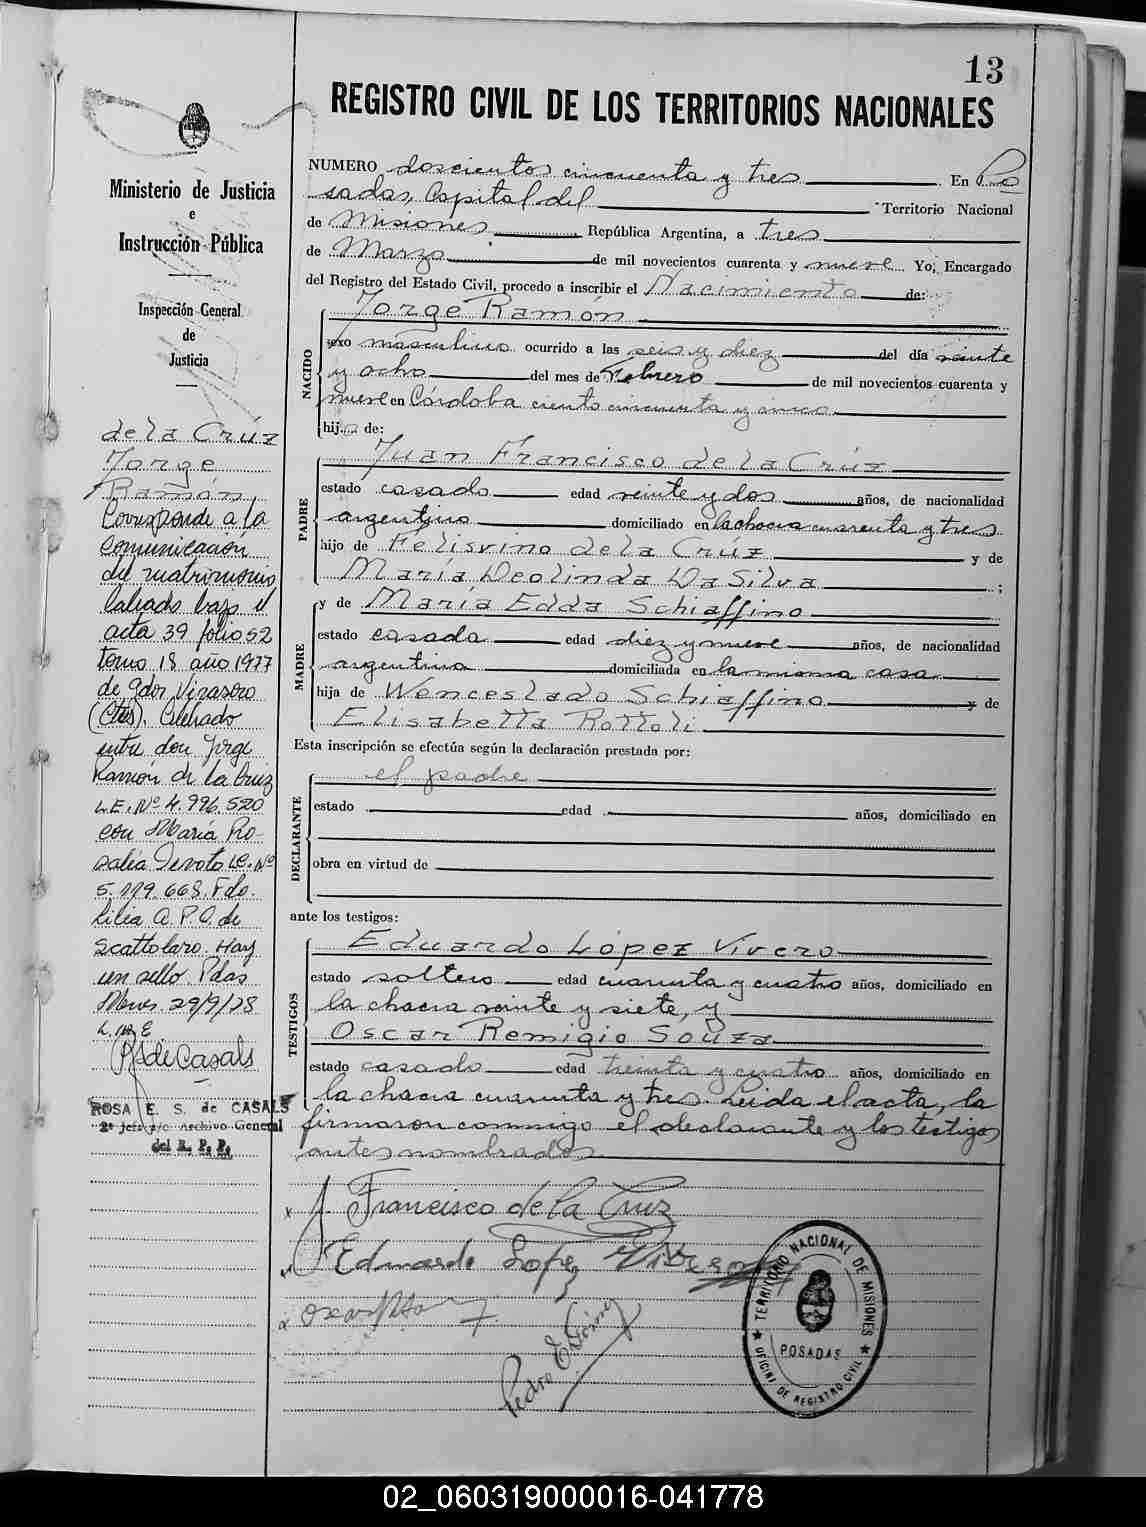 13
REGISTRO CIVIL DE LOS TERRITORIOS NACIONALES
Ministerio de Justicia
e
Instrucción Pública
Inspección General
de
Justicia
de la Crúz
Jorge
Ramón
Corresponde a la
comunicación
del matrimonio
labrado bajo el
acta 39 folio 52
tomo 18 año 1977
de Gdor Virasoro
(Ctes). Celebrado
entre don Jorge
Ramón de la Cruz
L.E. Nº 4.996.520
con María Ro-
salia Devoto LC. Nº
5.179.668. Fdo.
Lilia A. P. O. de
Scattolaro. Hay
un sello. Pdas
Mnes. 29/9/78
R S de Casals
ROSA E. S. de CASALS
2º Jefe a/c Archivo General
del R. P. P.
NUMERO doscientos cincuenta y tres En Po
sadas, Capital del Territorio Nacional
de Misiones República Argentina, a tres
de Marzo de mil novecientos cuarenta y nueve Yo, Encargado
del Registro del Estado Civil, procedo a inscribir el Nacimiento de:
NACIDO
Jorge Ramón
sexo masculino ocurrido a las seis y diez del día veinte
y ocho del mes de Febrero de mil novecientos cuarenta y
nueve en Córdoba ciento cincuenta y cinco
hijo de:
PADRE
Juan Francisco de la Crúz
estado casado edad veinte y dos años, de nacionalidad
argentino domiciliado en la chacra cuarenta y tres
hijo de Felisvino de la Crúz y de
María Deolinda Da Silva ;
MADRE
y de María Edda Schiaffino
estado casada edad diez y nueve años, de nacionalidad
argentina domiciliada en la misma casa
hija de Wenceslado Schiaffino y de
Elisabetta Rottoli
Esta inscripción se efectúa según la declaración prestada por:
DECLARANTE
el padre
estado edad años, domiciliado en
obra en virtud de
ante los testigos:
TESTIGOS
Eduardo López Vivero
estado soltero edad cuarenta y cuatro años, domiciliado en
la chacra veinte y siete, y
Oscar Remigio Souza
estado casado edad treinta y cuatro años, domiciliado en
la chacra cuarenta y tres. Leida el acta, la
firmaron conmigo el declarante y los testigos
antes nombrados
J. Francisco de la Cruz
Eduardo Lopez Vivero
Pedro E.
TERRITORIO NACIONAL DE MISIONES
POSADAS
OFICINA DE REGISTRO CIVIL
02_060319000016-041778